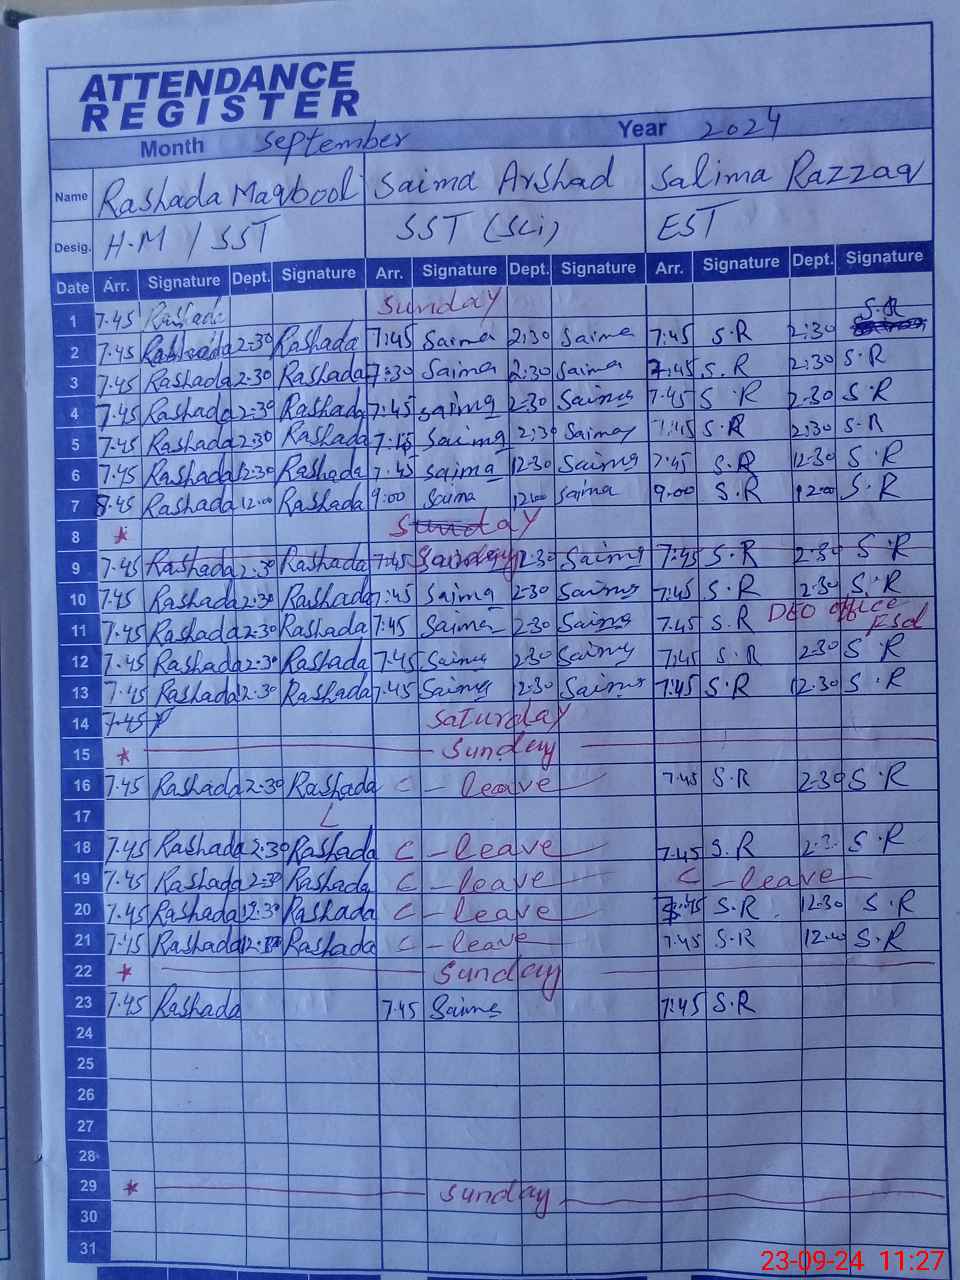 ATTENDANCE
REGISTER
Month September Year 2024
Name Rashada Maqbool Saima Arshad Salima Razzaq
Desig. H.M / SST SST (Sci) EST
Date Arr. Signature Dept. Signature Arr. Signature Dept. Signature Arr. Signature Dept. Signature
1 7.45 Rashada Sunday
2 7.45 Rashada 2.30 Rashada 7:45 Saima 2:30 Saima 7:45 S.R 2:30 S.R
3 7.45 Rashada 2.30 Rashada 7:30 Saima 2:30 Saima 7:45 S.R 2:30 S.R
4 7.45 Rashada 2.30 Rashada 7:45 Saima 2:30 Saima 7.45 S.R 2.30 S.R
5 7.45 Rashada 2.30 Rashada Saima 2:30 Saima 7:45 S.R 2:30 S.R
6 7.45 Rashada 12.30 Rashada 7.45 Saima 12.30 Saima 7:45 S.R 12.30 S.R
7 8.45 Rashada 12.00 Rashada 9:00 Saima 12.00 Saima 9.00 S.R 12.00 S.R
8 * Sunday
9 7.45 Rashada 2.30 Rashada 7:45 2.30 Saima 7:45 S.R 2.30 S.R
10 7.45 Rashada 2.30 Rashada 7:45 Saima 2:30 Saima 7:45 S.R 2.30 S.R
11 7.45 Rashada 2.30 Rashada 7:45 Saima 2:30 Saima 7.45 S.R DEO office Fsd
12 7.45 Rashada 2.30 Rashada 7.45 Saima 2:30 Saima 7:45 S.R 2.30 S.R
13 7.45 Rashada 12.30 Rashada 7.45 Saima 12.30 Saima 7:45 S.R 12.30 S.R
14 7.45 Saturday
15 * Sunday
16 7.45 Rashada 2.30 Rashada C - leave 7.45 S.R 2.30 S.R
17 L
18 7.45 Rashada 2.30 Rashada C - leave 7.45 S.R S.R
19 7.45 Rashada 2.30 Rashada C - leave C - leave
20 7.45 Rashada 12.30 Rashada C - leave S.R 12.30 S.R
21 7.45 Rashada Rashada C - leave 7.45 S.R S.R
22 * Sunday
23 7.45 Rashada 7.45 Saima 7:45 S.R
24
25
26
27
28
29 * Sunday
30
31
23-09-24 11:27